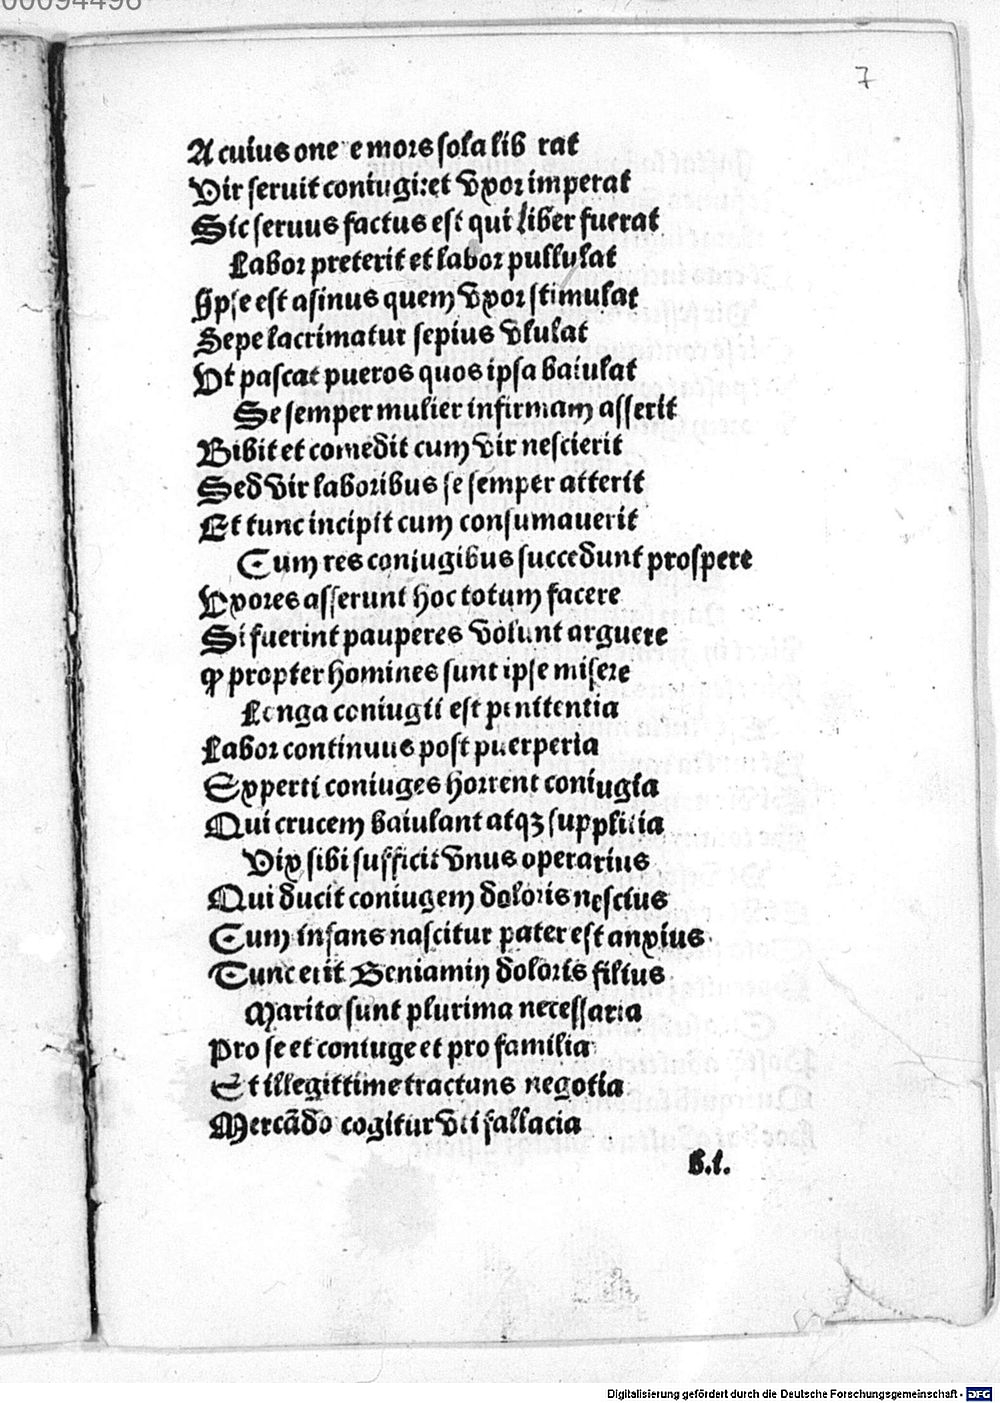 00094496
7
A cuius one e mors sola lib rat
Vir seruit coniugi: et vxor imperat
Sic seruus factus est qui liber fuerat
Labor preterit et labor pullulat
Ipse est asinus quem vxor stimulat
Sepe lacrimatur sepius vlulat
Vt pascat pueros quos ipsa baiulat
Se semper mulier infirmam asserit
Bibit et comedit cum vir nescierit
Sed vir laboribus se semper atterit
Et tunc incipit cum consumauerit
Cum res coniugibus succedunt prospere
Vxores asserunt hoc totum facere
Si fuerint pauperes volunt arguere
ꝙ propter homines sunt ipse misere
Longa coniugii est penitentia
Labor continuus post puerperia
Experti coniuges horrent coniugia
Qui crucem baiulant atqꝫ supplicia
Vix sibi sufficit vnus operarius
Qui ducit coniugem doloris nescius
Cum infans nascitur pater est anxius
Tunc erit Beniamin doloris filius
Marito sunt plurima necessaria
Pro se et coniuge et pro familia
Et illegittime tractans negotia
Mercādo cogitur vti fallacia
b.i.
Digitalisierung gefördert durch die Deutsche Forschungsgemeinschaft - DFG